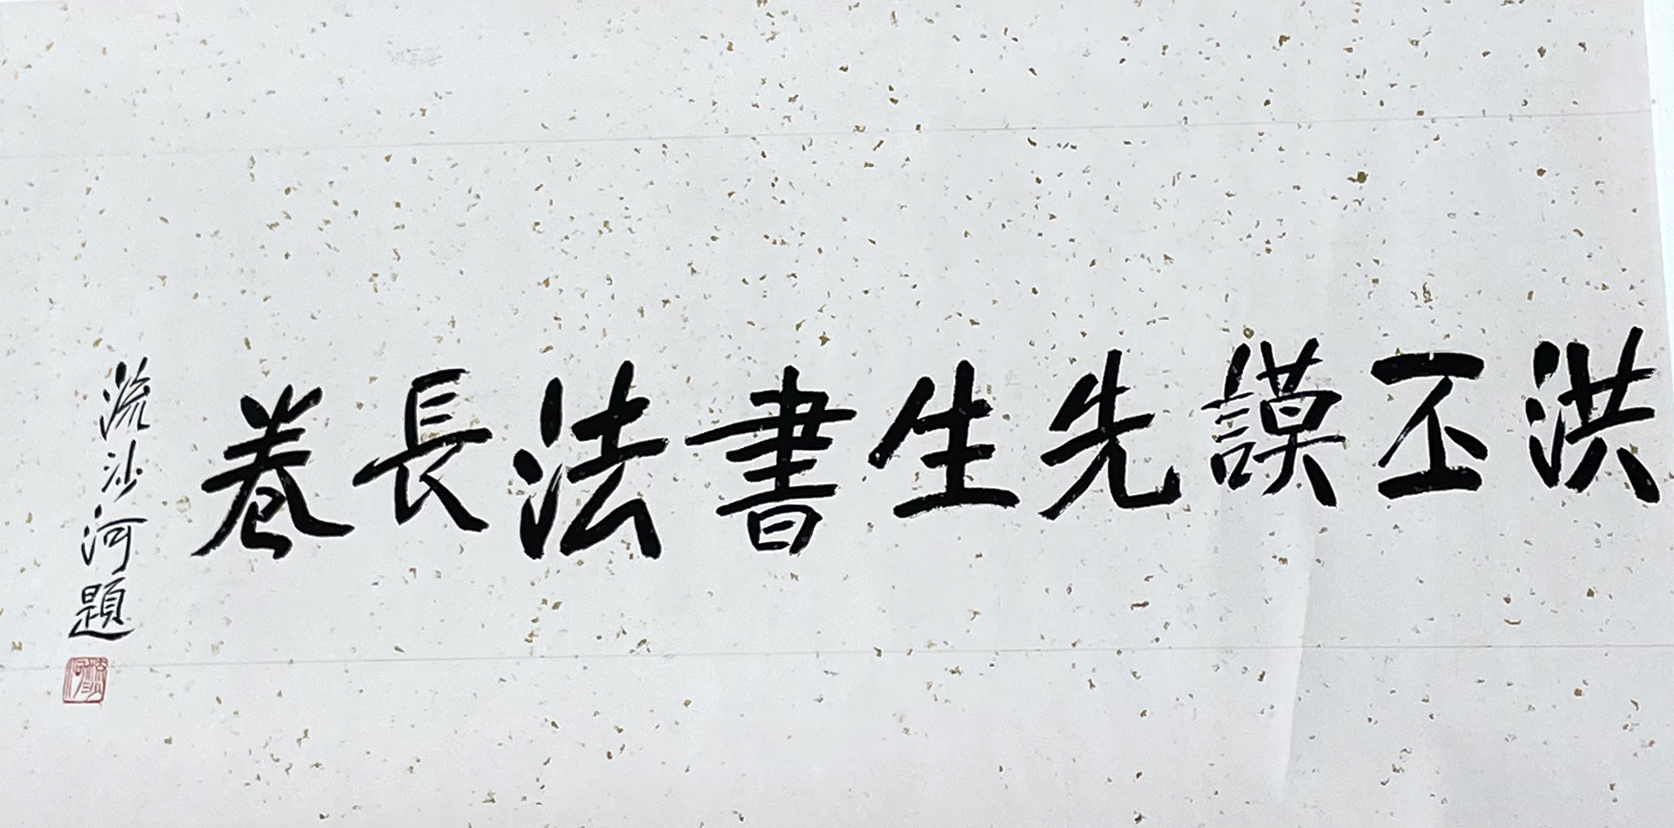 洪丕謨先生書法長卷
流沙河題
流沙河